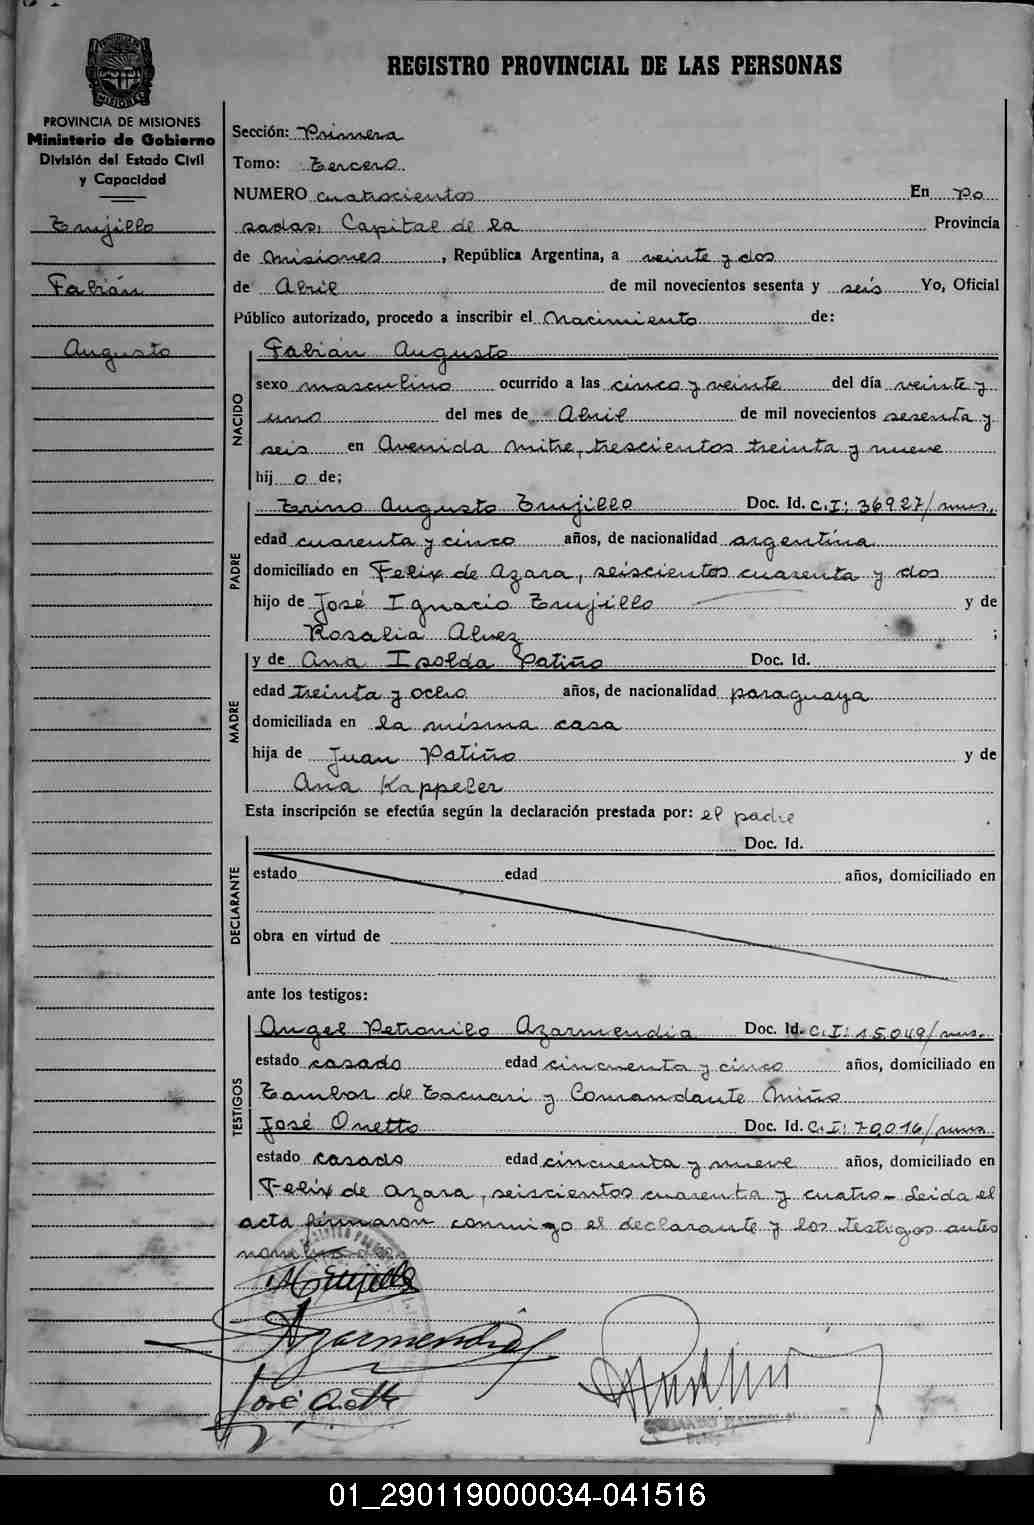 PROVINCIA DE MISIONES
Ministerio de Gobierno
División del Estado Civil
y Capacidad
Trujillo
Fabián
Augusto
REGISTRO PROVINCIAL DE LAS PERSONAS
Sección: Primera
Tomo: Tercero
NUMERO cuatrocientos En Po
sadas, Capital de la Provincia
de Misiones, República Argentina, a veinte y dos
de Abril de mil novecientos sesenta y seis Yo, Oficial
Público autorizado, procedo a inscribir el Nacimiento de:
NACIDO
Fabián Augusto
sexo masculino ocurrido a las cinco y veinte del día veinte y
uno del mes de Abril de mil novecientos sesenta y
seis en Avenida Mitre, trescientos treinta y nueve
hij o de;
PADRE
Trino Augusto Trujillo Doc. Id. C.I: 36927/mnes.
edad cuarenta y cinco años, de nacionalidad argentina
domiciliado en Felix de Azara, seiscientos cuarenta y dos
hijo de José Ignacio Trujillo y de
Rosalia Alvez ;
MADRE
y de Ana Isolda Patiño Doc. Id.
edad treinta y ocho años, de nacionalidad paraguaya
domiciliada en la misma casa
hija de Juan Patiño y de
Ana Kappeler
Esta inscripción se efectúa según la declaración prestada por: el padre
DECLARANTE
Doc. Id.
estado edad años, domiciliado en
obra en virtud de
ante los testigos:
TESTIGOS
Angel Petronilo Azarmendia Doc. Id. C.I: 15.049/mns.
estado casado edad cincuenta y cinco años, domiciliado en
Tambor de Tacuari y Comandante Miño
José Onetto Doc. Id. C.I: 70.016/mns
estado casado edad cincuenta y nueve años, domiciliado en
Felix de Azara, seiscientos cuarenta y cuatro - Leida el
acta firmaron conmigo el declarante y los testigos antes
Trujillo
Azarmendia
José Onetto
01_290119000034-041516